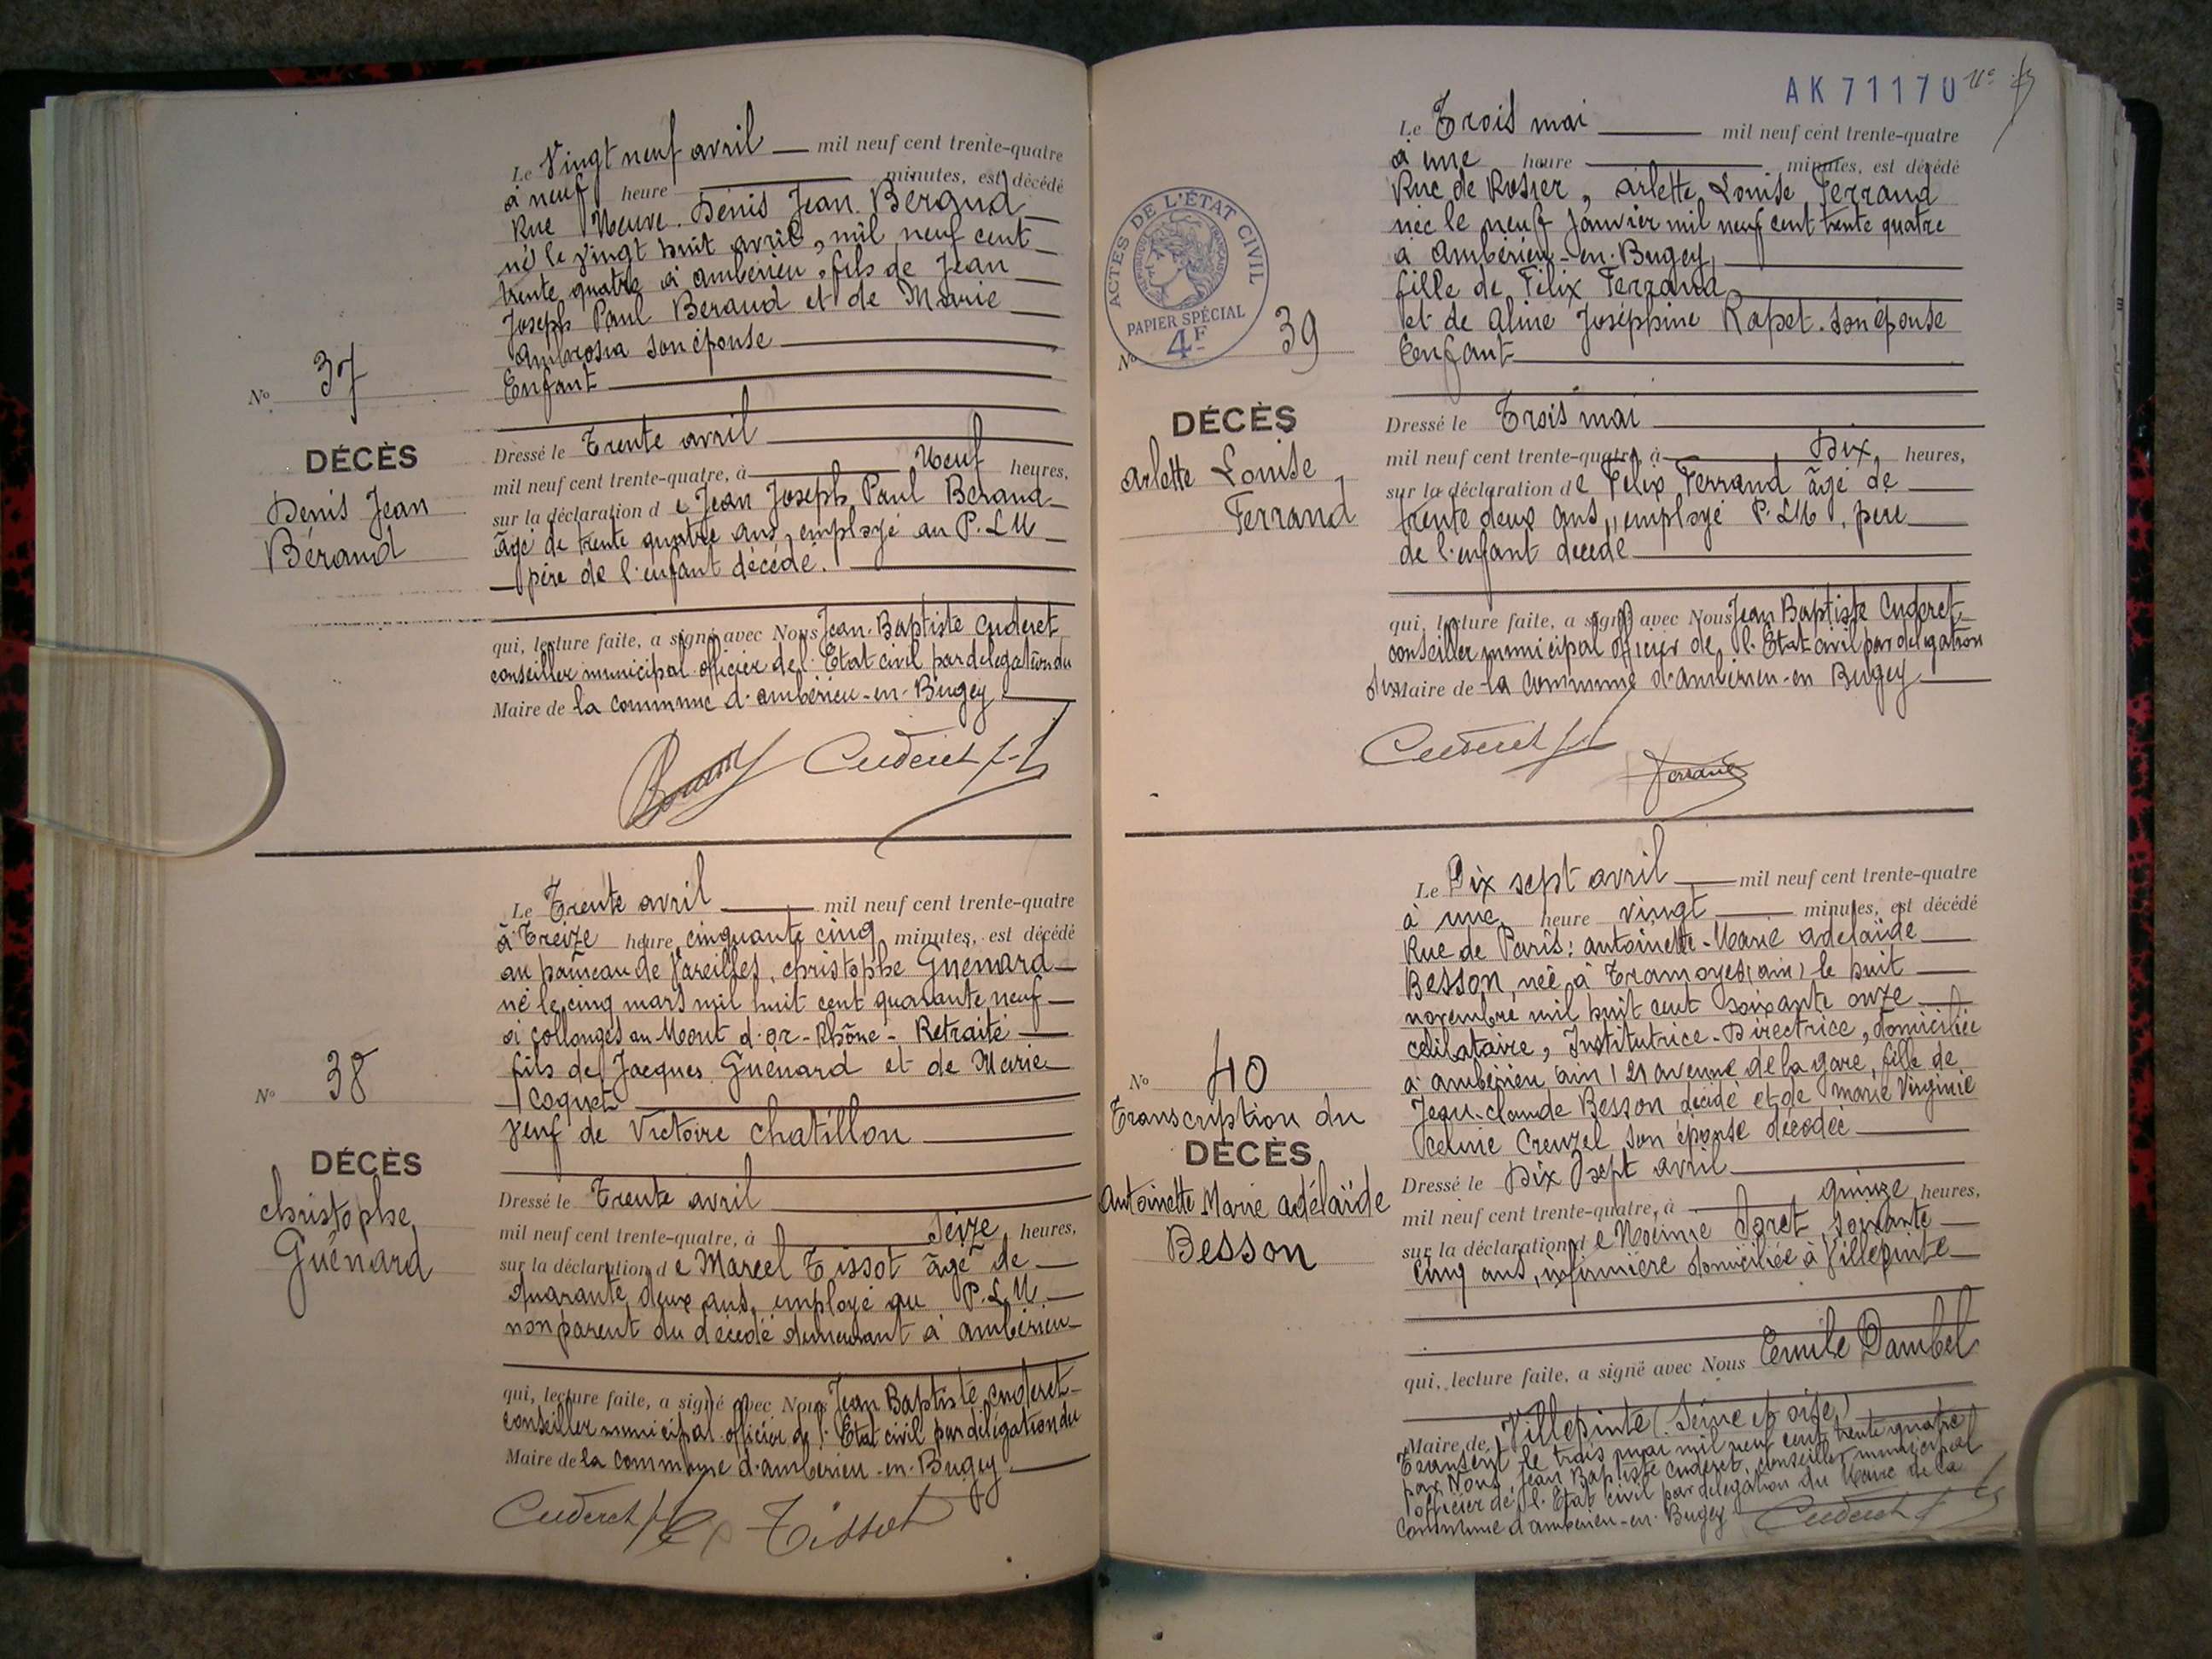 Le Vingt neuf avril mil neuf cent trente-quatre
à neuf heure minutes, est décédé
Rue Neuve. Denis Jean Béraud
né le vingt huit avril, mil neuf cent
trente quatre à ambérieu, fils de Jean
Joseph Paul Beraud et de Marie
Ambrosia son épouse
Enfant
No 37
DÉCÈS
Denis Jean
Béraud
Dressé le Trente avril
mil neuf cent trente-quatre, à Neuf heures,
sur la déclaration de Jean Joseph Paul Beraud
âgé de trente quatre ans, employé au P.L.M
père de l'enfant décédé.
qui, lecture faite, a signé avec Nous Jean-Baptiste Cuderet
conseiller municipal officier de l'Etat civil par delegation du
Maire de la commune d'ambérieu-en-Bugey
Cuderet
Le Trente avril mil neuf cent trente-quatre
à Treize heure cinquante cinq minutes, est décédé
au hameau de Vareilles, christophe Guénard
né le cinq mars mil huit cent quarante neuf
à collonges au Mont d'or-Rhône-Retraité
fils de Jacques Guénard et de Marie
Coquet
veuf de Victoire Chatillon
No 38
DÉCÈS
christophe
Guénard
Dressé le Trente avril
mil neuf cent trente-quatre, à Seize heures,
sur la déclaration de Marcel Tissot âgé de
quarante deux ans, employé au P.L.M.
non parent du décédé demeurant à ambérieu
qui, lecture faite, a signé avec Nous Jean Baptiste Cuderet
conseiller municipal officier de l'Etat civil par délégation du
Maire de la commune d'ambérieu-en-Bugey
Cuderet Tissot
AK 71170
Le Trois mai mil neuf cent trente-quatre
à une heure minutes, est décédé
Rue de Rosier, arlette Louise Ferrand
née le neuf Janvier mil neuf cent trente quatre
à Ambérieu-en-Bugey,
fille de Félix Ferrand
et de Aline Joséphine Rapet son épouse
Enfant
ACTES DE L'ÉTAT CIVIL
RÉPUBLIQUE FRANÇAISE
PAPIER SPÉCIAL
4F
No 39
DÉCÈS
Arlette Louise
Ferrand
Dressé le Trois mai
mil neuf cent trente-quatre, à Dix heures,
sur la déclaration de Félix Ferrand âgé de
trente deux ans, employé P.L.M, père
de l'enfant décédé
qui, lecture faite, a signé avec Nous Jean Baptiste Cuderet
conseiller municipal officier de l'Etat civil par délégation
du Maire de la commune d'ambérieu-en Bugey
Cuderet Ferrand
Le Dix sept avril mil neuf cent trente-quatre
à une heure vingt minutes, est décédé
Rue de Paris: antoinette-Marie adelaïde
Besson, née à Tramoyes (ain) le huit
novembre mil huit cent soixante onze
célibataire, Institutrice-Directrice, domiciliée
à ambérieu (ain) 21 avenue de la gare, fille de
Jean-claude Besson décédé et de marie Virginie
Celine Creuzel son épouse décédée
No 40
Transcription du
DÉCÈS
Antoinette Marie adélaïde
Besson
Dressé le Dix sept avril
mil neuf cent trente-quatre, à quinze heures,
sur la déclaration de Noémie Soret, soixante
cinq ans, infirmière domiciliée à Villepinte
qui, lecture faite, a signé avec Nous Emile Dambel
Maire de Villepinte (Seine et oise)
Transcrit le trois mai mil neuf cent trente quatre
par Nous Jean Baptiste Cuderet, conseiller municipal
officier de l'Etat civil par delegation du Maire de la
commune d'ambérieu-en-Bugey Cuderet